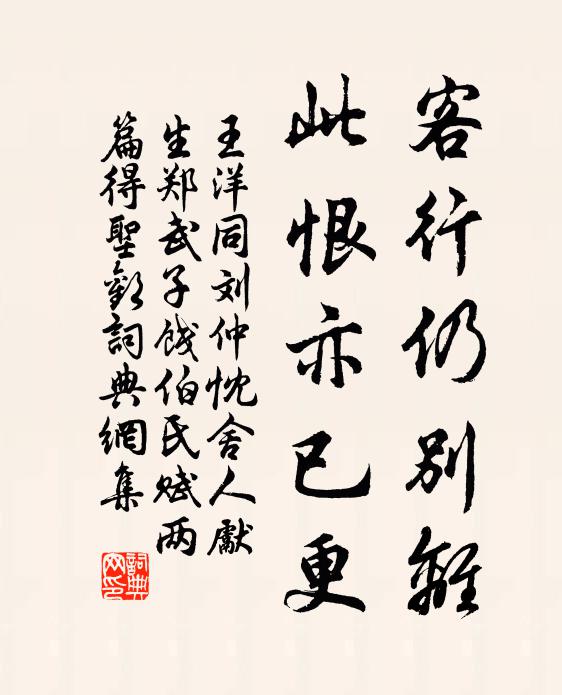 客行仍别離
此恨亦已更
王洋同刘仲忱舍人獻
生郑武子餞伯氏赋两
篇得聖詞典網集
詞典
网印